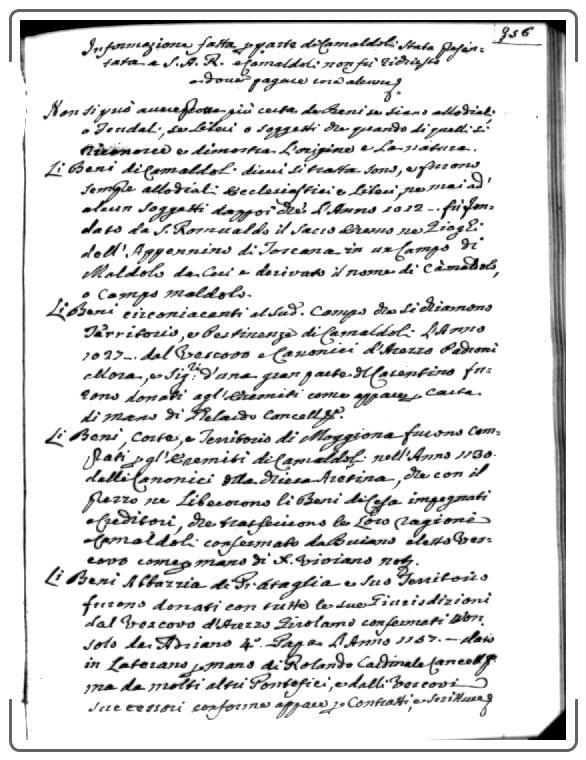 356
Informazione fatta p parte di Camaldoli stata presen-
tata a S. A. R. e Camaldoli non fu richiesto
a dover pagare cosa alcuna
Non si può avere più certa de Beni se siano allodiali
o feudali, se liberi o soggetti che quando di quelli si
riconosce e dimostra l'origine e la natura.
Li Beni di Camaldoli di cui si tratta sono, e furono
sempre allodiali Ecclesiastici e liberi, ne mai ad
alcun soggetti dappoi che l'Anno 1012 - fu fon-
dato da S. Romualdo il Sacro Eremo ne Gioghi
dell'Appennino di Toscana in un Campo di
Maldolo da cui e derivato il nome di Camaldoli,
o Campo Maldolo.
Li Beni circoniacenti al sud. Campo che si chiamono
Territorio, e Pertinenze di Camaldoli l'Anno
1027 - dal Vescovo e Canonici d'Arezzo Padroni
allora, e Sig.ri d'una gran parte di Casentino fu-
rono donati agl'Eremiti come appare p Carta
di mano di Pelardo Cancell.
Li Beni, Corte, e Territorio di Moggiona furono com-
prati p gl'Eremiti di Camaldoli nell'Anno 1130
dalli Canonici della Chiesa Aretina, che con il
prezzo ne liberorono li Beni di Chiesa impegnati
a Creditori, che trasferirono le loro ragioni a
Camaldoli confermato da Buiano eletto Ves-
covo come p mano di S. Viviano not.
Li Beni Abbazzia di Prataglia e suo Territorio
furono donati con tutte le sue Giurisdizioni
dal Vescovo d'Arezzo Girolamo confermati non
solo da Adriano 4.o Papa l'Anno 1157. - dato
in Laterano p mano di Rolando Cardinale Cancell.
ma da molti altri Pontefici, e dalli Vescovi
successori conforme appare p Contratti, e scritture